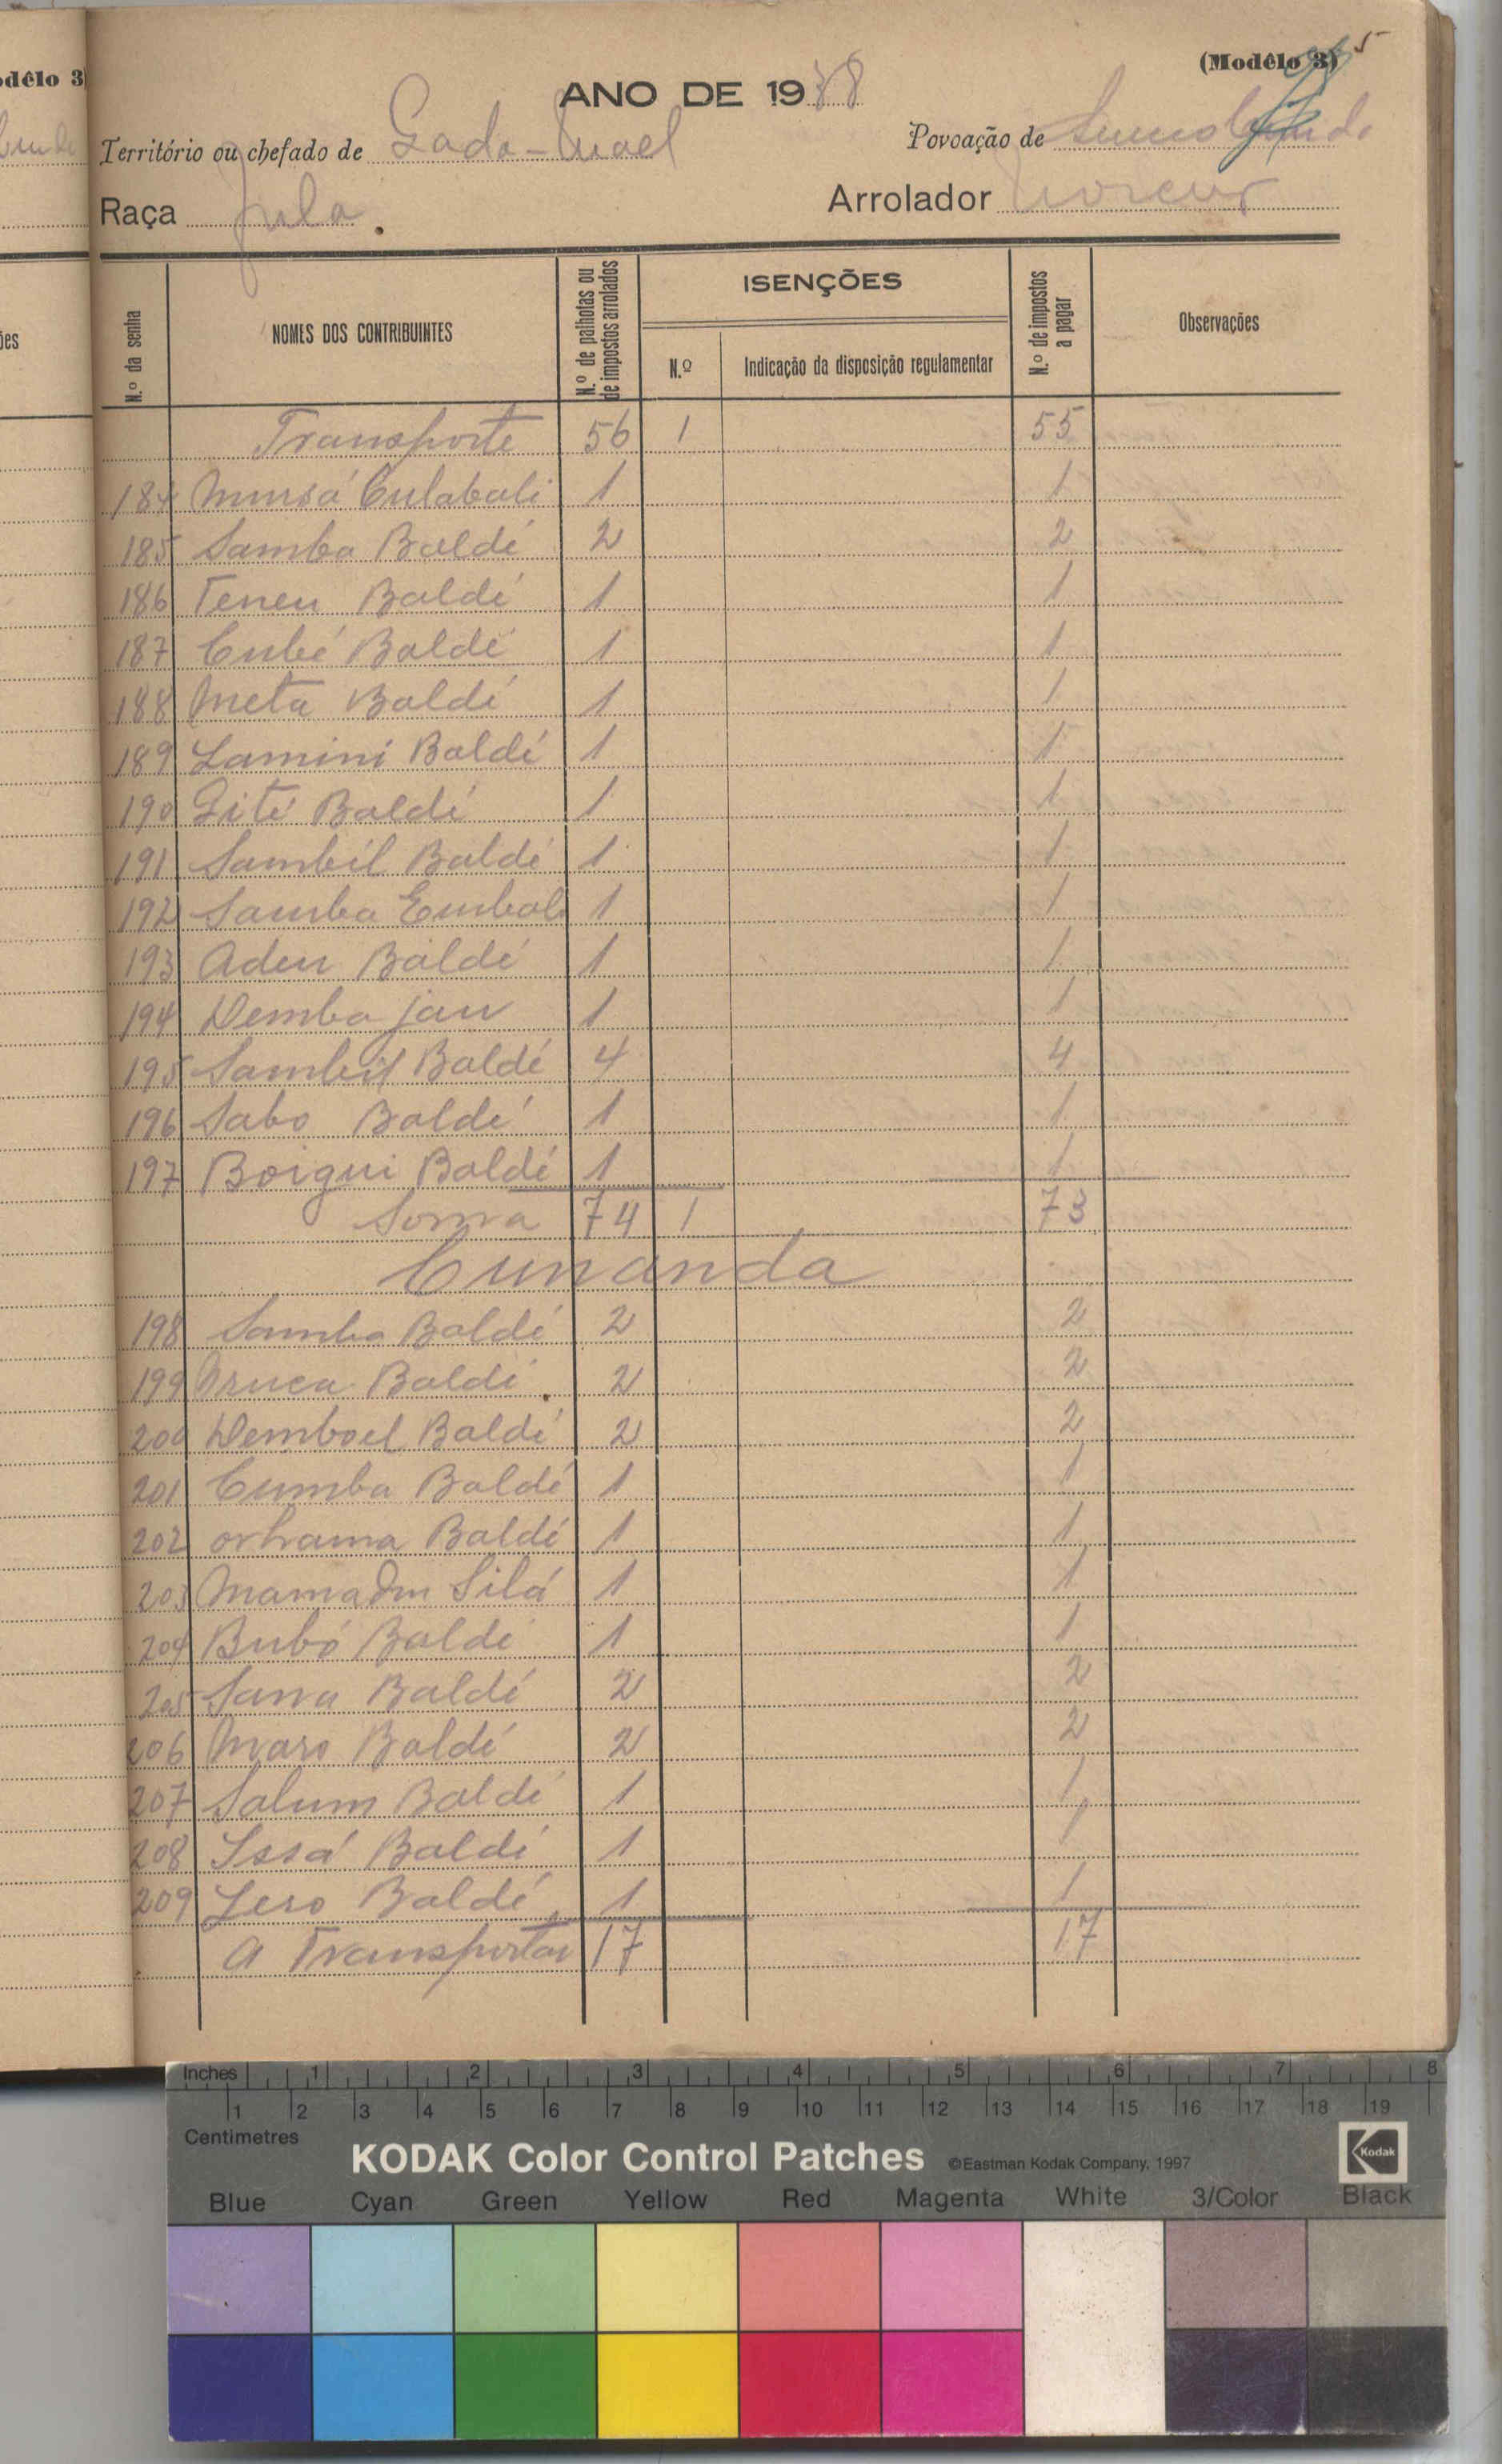 (Modêlo 3) 5
ANO DE 1938
Território ou chefado de Gada-Mael Povoação de
Raça fula. Arrolador
N.º da senha NOMES DOS CONTRIBUINTES N.º de palhotas ou de impostos arrolados ISENÇÕES N.º de impostos a pagar Observações
N.º Indicação da disposição regulamentar
Transporte 56 1 55
184 Mussá Culabali 1 1
185 Samba Baldé 2 2
186 Teneu Baldé 1 1
187 Cubé Baldé 1 1
188 Meta Baldé 1 1
189 Lamini Baldé 1 1
190 Gité Baldé 1 1
191 Sambél Baldé 1 1
192 Samba Embaló 1 1
193 Adeu Baldé 1 1
194 Demba jau 1 1
195 Baldé 4 4
196 Sabo Baldé 1 1
197 Boigui Baldé 1 1
Soma 74 1 73
Cunanda
198 Samba Baldé 2 2
199 Baldé 2 2
200 Demboel Baldé 2 2
201 Cumba Baldé 1 1
202 Baldé 1 1
203 Mamadu Silá 1 1
204 Bubó Baldé 1 1
205 Sana Baldé 2 2
206 Maro Baldé 2 2
207 Salum Baldé 1 1
208 Issá Baldé 1 1
209 Jero Baldé 1 1
A Transportar 17 17
Inches 1 2 3 4 5 6 7 8
1 2 3 4 5 6 7 8 9 10 11 12 13 14 15 16 17 18 19
Centimetres
KODAK Color Control Patches ©Eastman Kodak Company, 1997 Kodak
Blue Cyan Green Yellow Red Magenta White 3/Color Black